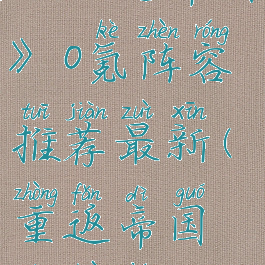 kè zhèn róng
》0氪阵容
tuī jiàn zuì xīn
推荐最新(
zhòng fǎn dì guó
重返帝国